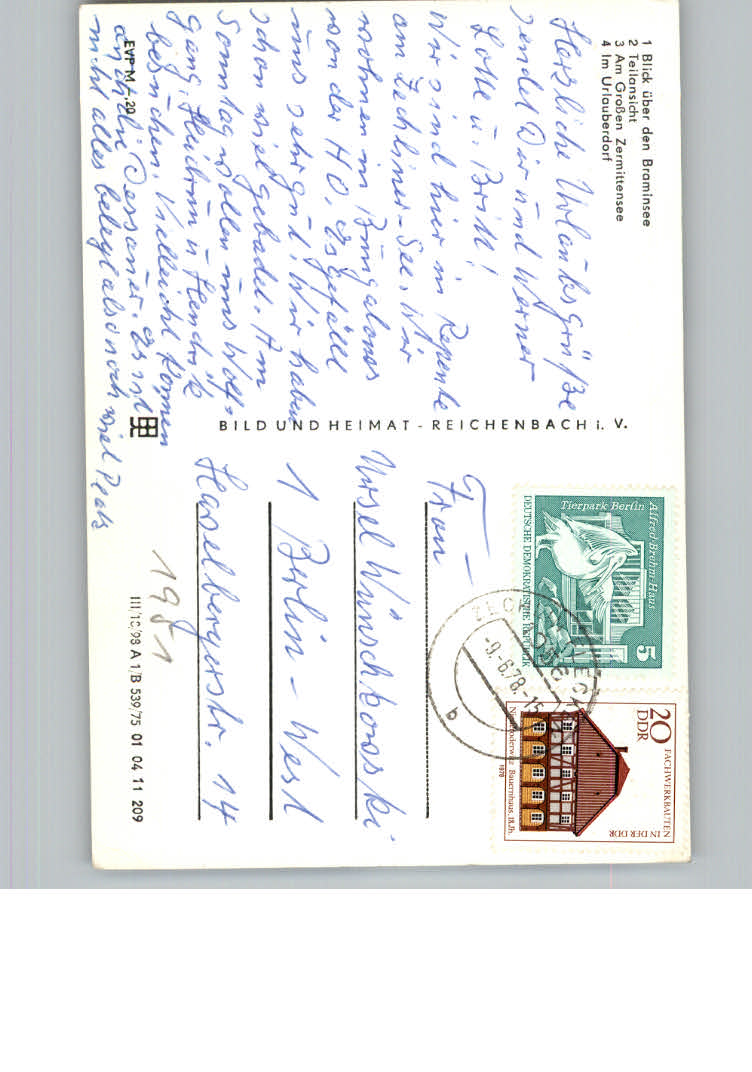 1 Blick über den Braminsee
2 Teilansicht
3 Am Großen Zermittensee
4 Im Urlauberdorf
Herzliche Urlaubsgrüße
sendet Dir und Werner
Lotte u. Brill!
Wir sind hier in Repente
am Zechliner-See. Wir
wohnen in Bungalows
von der HO. Es gefällt
uns sehr gut. Wir haben
schon viel gebadet. Am
Sonntag wollen uns Wolf-
gang, Heidrun u. Hendrik
besuchen. Vielleicht können
auch die Dessauer. Es ist
nicht alles belegt also noch viel Platz
EVP M -,20
BILD UND HEIMAT - REICHENBACH i. V.
Frau
Ursel Wunschkowski
1 Berlin-West
Haselbergerstr. 14
1951
III/18/98 A 1/B 539/75 01 04 11 209
Tierpark Berlin
Alfred-Brehm-Haus
DEUTSCHE DEMOKRATISCHE REPUBLIK
5
-9.-6.78.-15
b
20
DDR
FACHWERKBAUTEN
IN DER DDR
Niederoderwitz Bauernhaus, 18.Jh.
1978